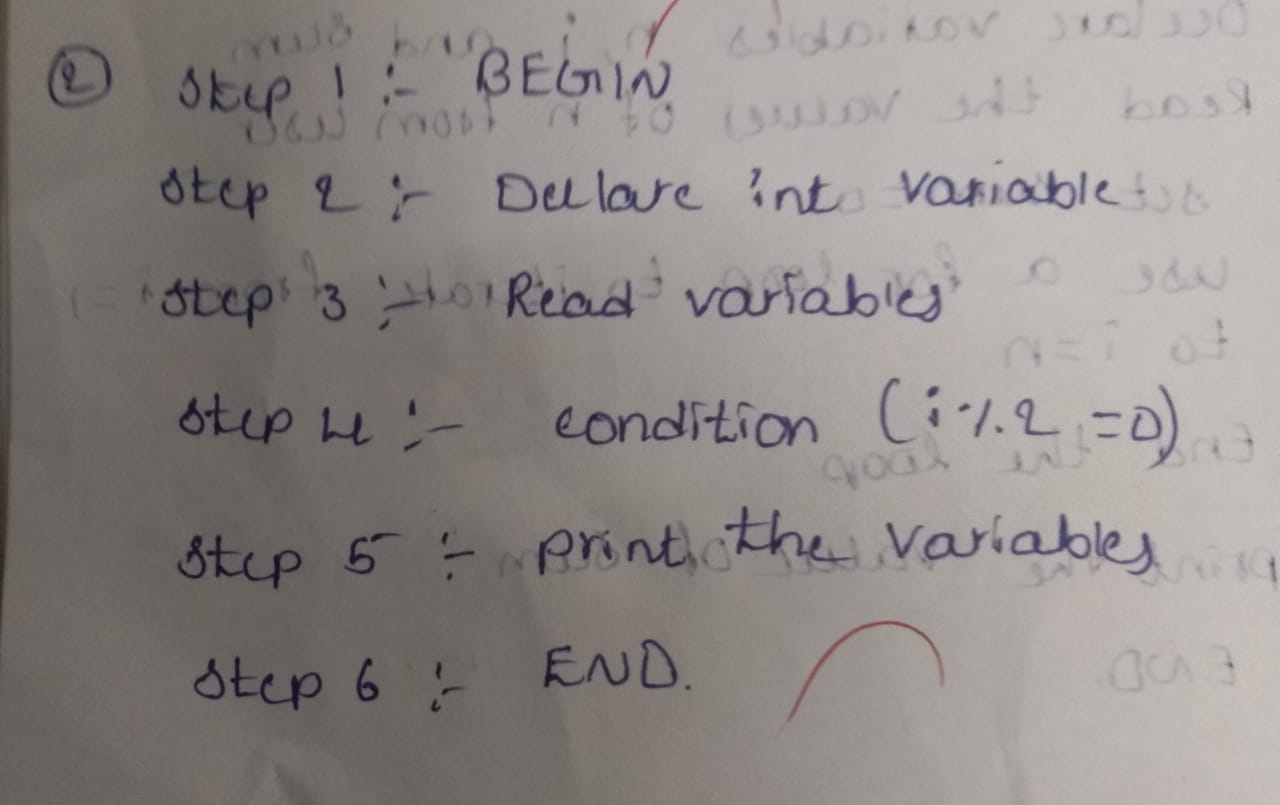 ② Step 1 :- BEGIN
Step 2 :- Declare int variable
Step 3 :- Read variables
Step 4 :- condition (i%2 =0)
Step 5 :- print the variables
Step 6 :- END.